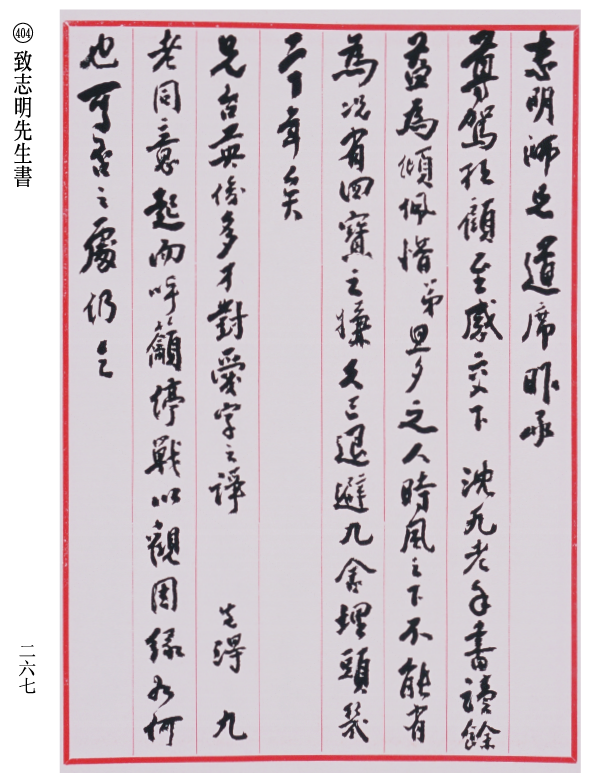 志明師兄道席昨承
尊駕枉顧至感交下 沈九老手書讀餘
益為傾佩惜弟旦夕之人時風之下不能有
為況有四寶之嫌久已退避九舍埋頭
年矣
兄台英俊多才對愛字之諍 先得 九
老同意起而呼籲停戰以觀因緣如何
也可否之處仍乞
404 致志明先生書
二六七